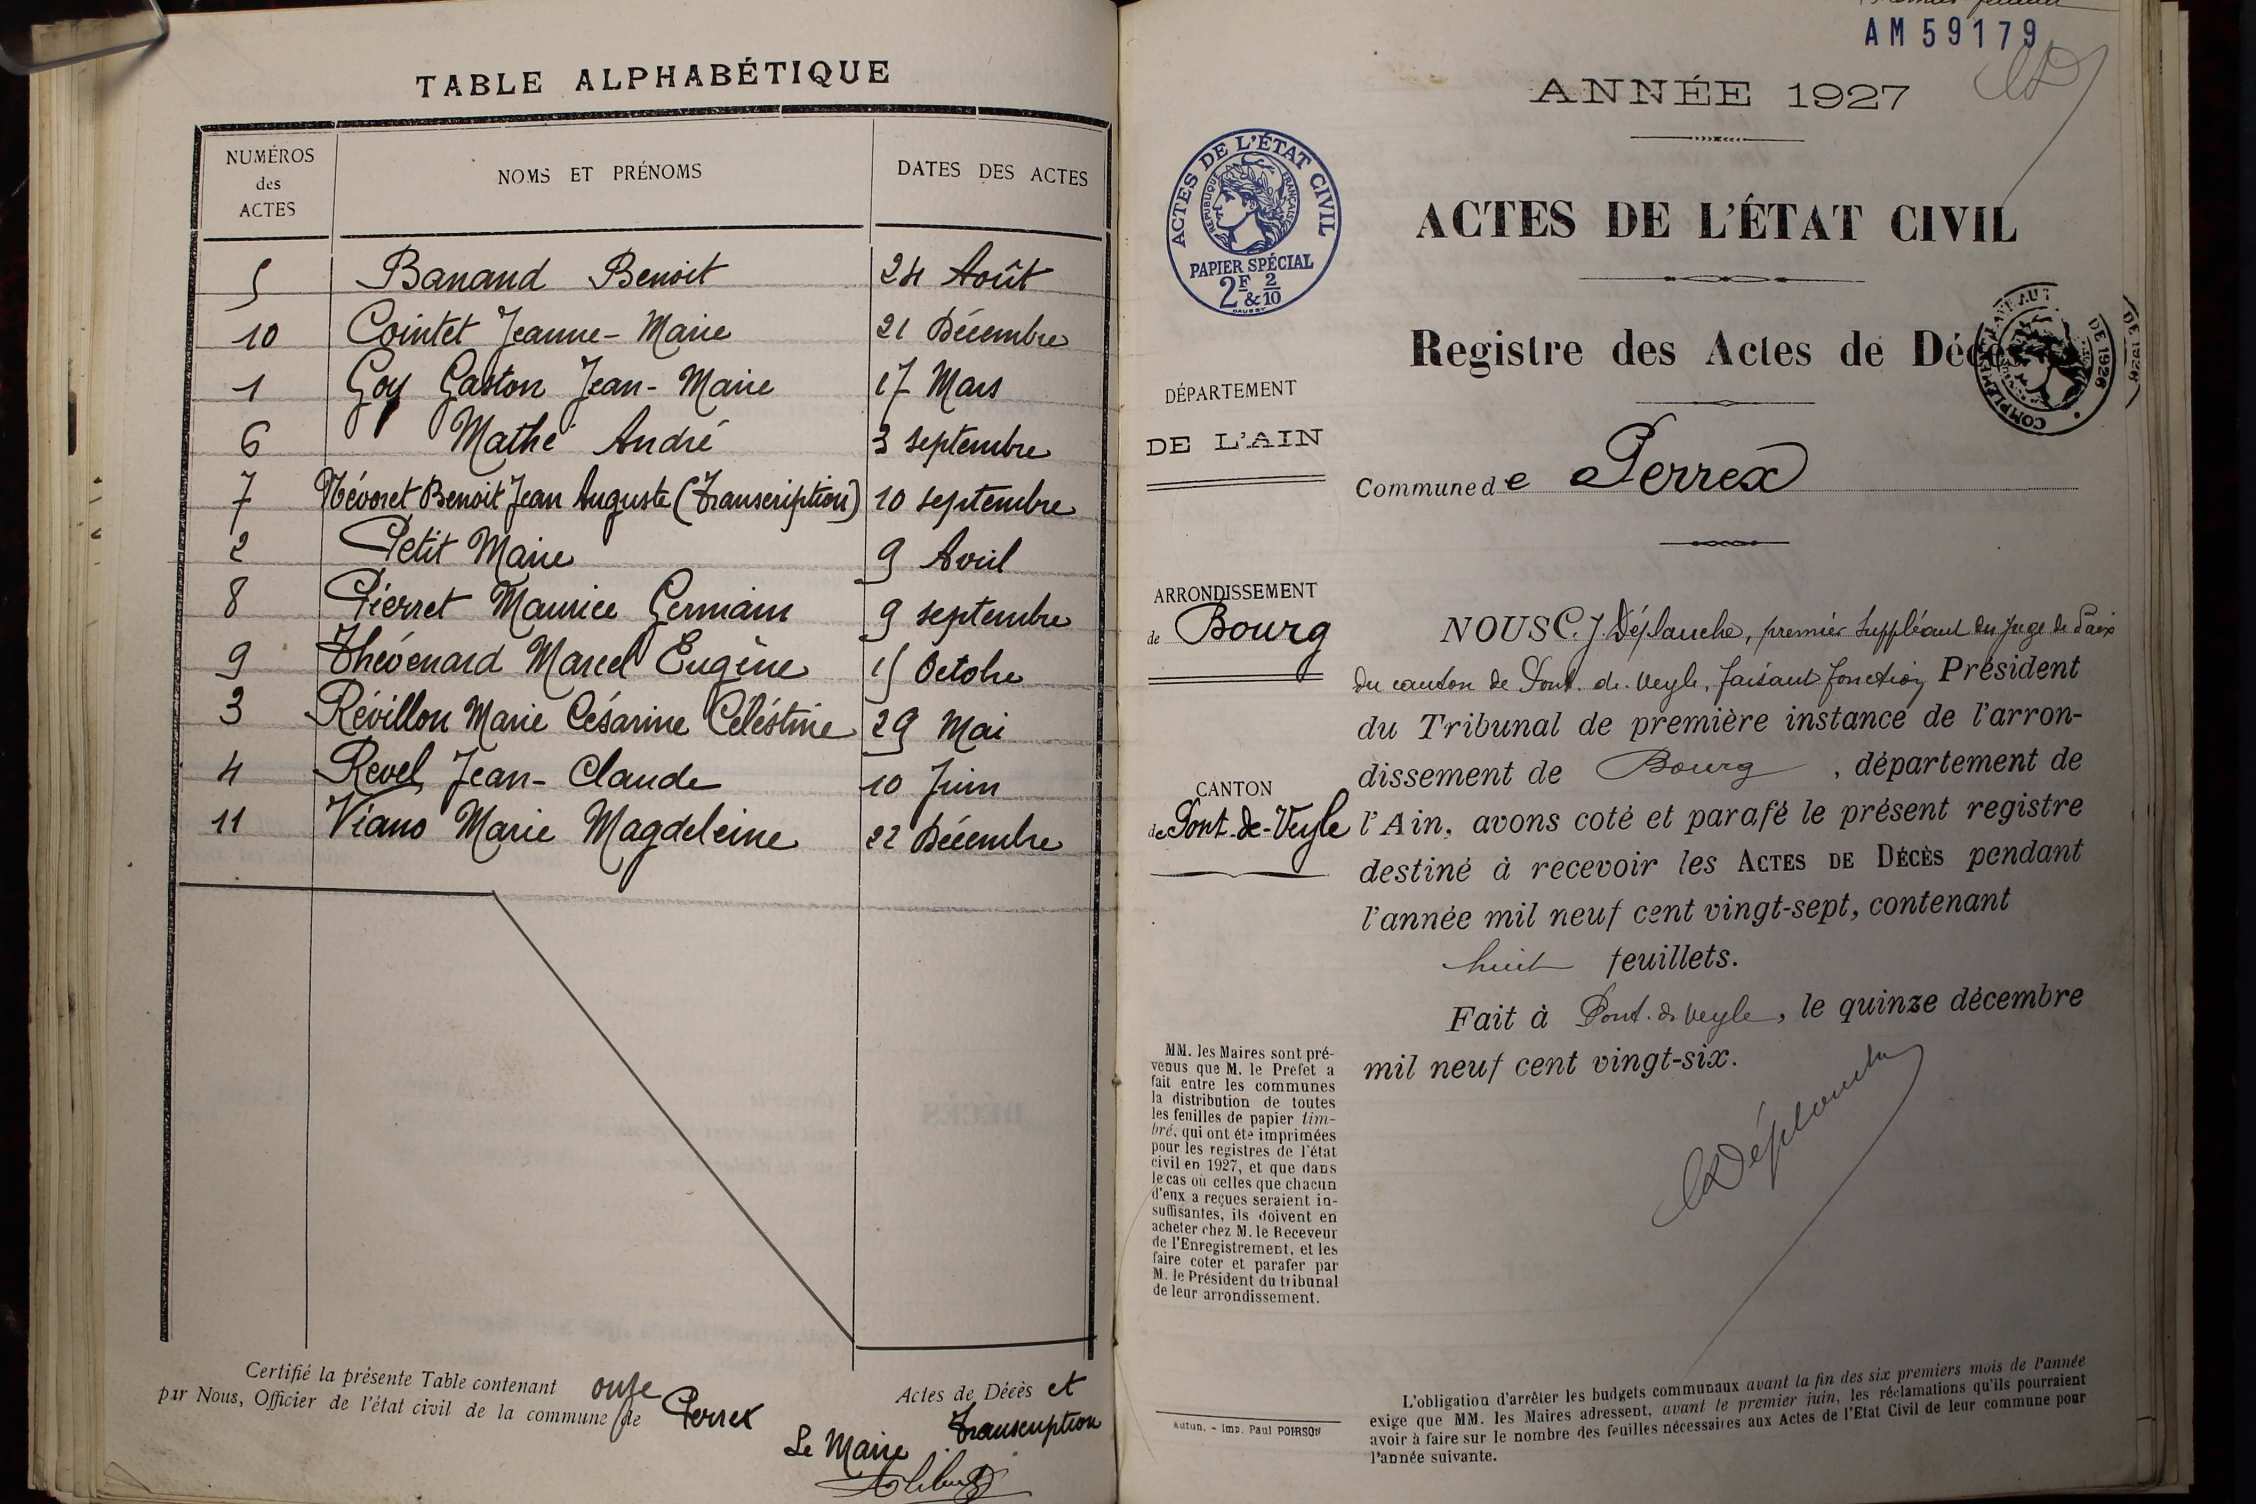 TABLE ALPHABÉTIQUE
NUMÉROS des ACTES NOMS ET PRÉNOMS DATES DES ACTES
5 Banand Benoit 24 Août
10 Cointet Jeanne-Marie 21 Décembre
1 Goy Gaston Jean-Marie 17 Mars
6 Mathé André 3 septembre
7 Névoret Benoit Jean Auguste (Transcription) 10 septembre
2 Petit Marie 9 Avril
8 Pierret Maurice Germain 9 septembre
9 Thévenard Marcel Eugène 15 Octobre
3 Révillon Marie Césarine Céléstine 29 Mai
4 Revel Jean-Claude 10 Juin
11 Viano Marie Magdeleine 22 Décembre
Certifié la présente Table contenant onze Actes de Décès et Transcription
par Nous, Officier de l'état civil de la commune de Perrex
Le Maire
AM 59179
ANNÉE 1927
ACTES DE L'ÉTAT CIVIL
RÉPUBLIQUE FRANÇAISE
PAPIER SPÉCIAL
2F & 2/10
ACTES DE L'ÉTAT CIVIL
Registre des Actes de Décès
DE 1926
DÉPARTEMENT
DE L'AIN
Commune de Perrex
ARRONDISSEMENT
de Bourg
CANTON
de Pont-de-Veyle
NOUS C. J. Déplanche, premier suppléant du Juge de Paix
du canton de Pont-de-Veyle, faisant fonction Président
du Tribunal de première instance de l'arron-
dissement de Bourg, département de
l'Ain, avons coté et parafé le présent registre
destiné à recevoir les ACTES DE DÉCÈS pendant
l'année mil neuf cent vingt-sept, contenant
huit feuillets.
Fait à Pont-de-Veyle, le quinze décembre
mil neuf cent vingt-six.
Déplanche
MM. les Maires sont pré-
venus que M. le Prefet a
fait entre les communes
la distribution de toutes
les feuilles de papier tim-
bré, qui ont été imprimées
pour les registres de l'état
civil en 1927, et que dans
le cas où celles que chacun
d'eux a reçues seraient in-
suffisantes, ils doivent en
acheter chez M. le Receveur
de l'Enregistrement, et les
faire coter et parafer par
M. le Président du tribunal
de leur arrondissement.
Autun. - Imp. Paul POIRSON
L'obligation d'arrêter les budgets communaux avant la fin des six premiers mois de l'année
exige que MM. les Maires adressent, avant le premier juin, les réclamations qu'ils pourraient
avoir à faire sur le nombre des feuilles nécessaires aux Actes de l'Etat Civil de leur commune pour
l'année suivante.